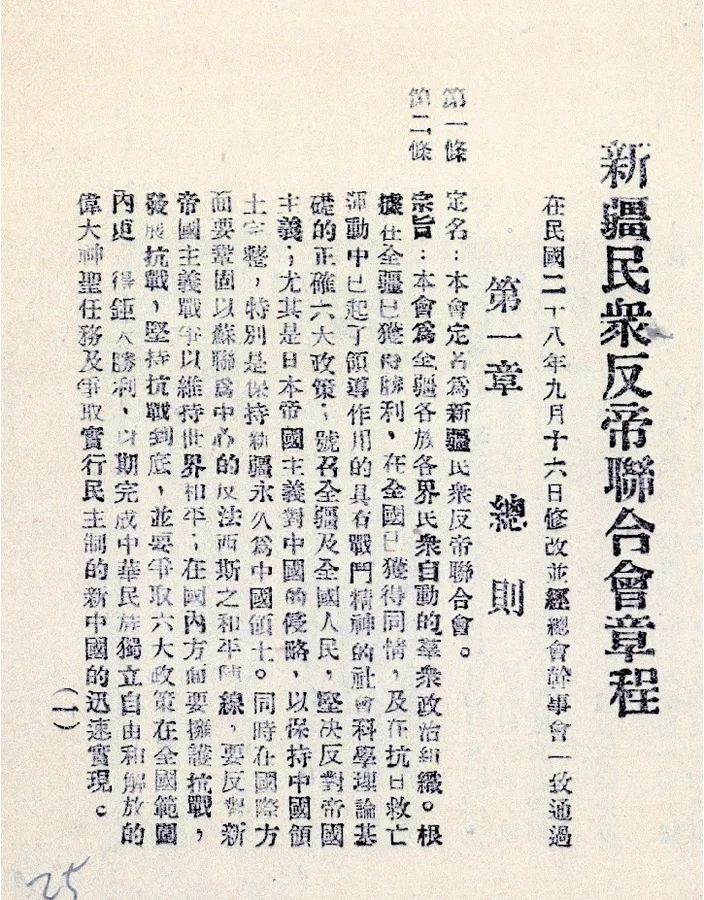 新疆民衆反帝聯合會章程
在民國二十八年九月十六日修改並經總會幹事會一致通過
第一章 總則
第一條 定名：本會定名爲新疆民衆反帝聯合會。
第二條 宗旨：本會爲全疆各族各界民衆自動的羣衆政治組織。根
據在全疆已獲得勝利，在全國已獲得同情，及在抗日救亡
運動中已起了領導作用的具有戰鬥精神的社會科學理論基
礎的正確六大政策；號召全疆及全國人民，堅决反對帝國
主義；尤其是日本帝國主義對中國的侵略，以保持中國領
土完整，特別是保持新疆永久爲中國領土。同時在國際方
面要鞏固以蘇聯爲中心的反法西斯之和平陣線，要反對新
帝國主義戰爭以維持世界和平；在國內方面要擁護抗戰，
發展抗戰，堅持抗戰到底，並要爭取六大政策在全國範圍
內更 得鉅大勝利，以期完成中華民族獨立自由和解放的
偉大神聖任務及爭取實行民主制的新中國的迅速實現。
（一）
25